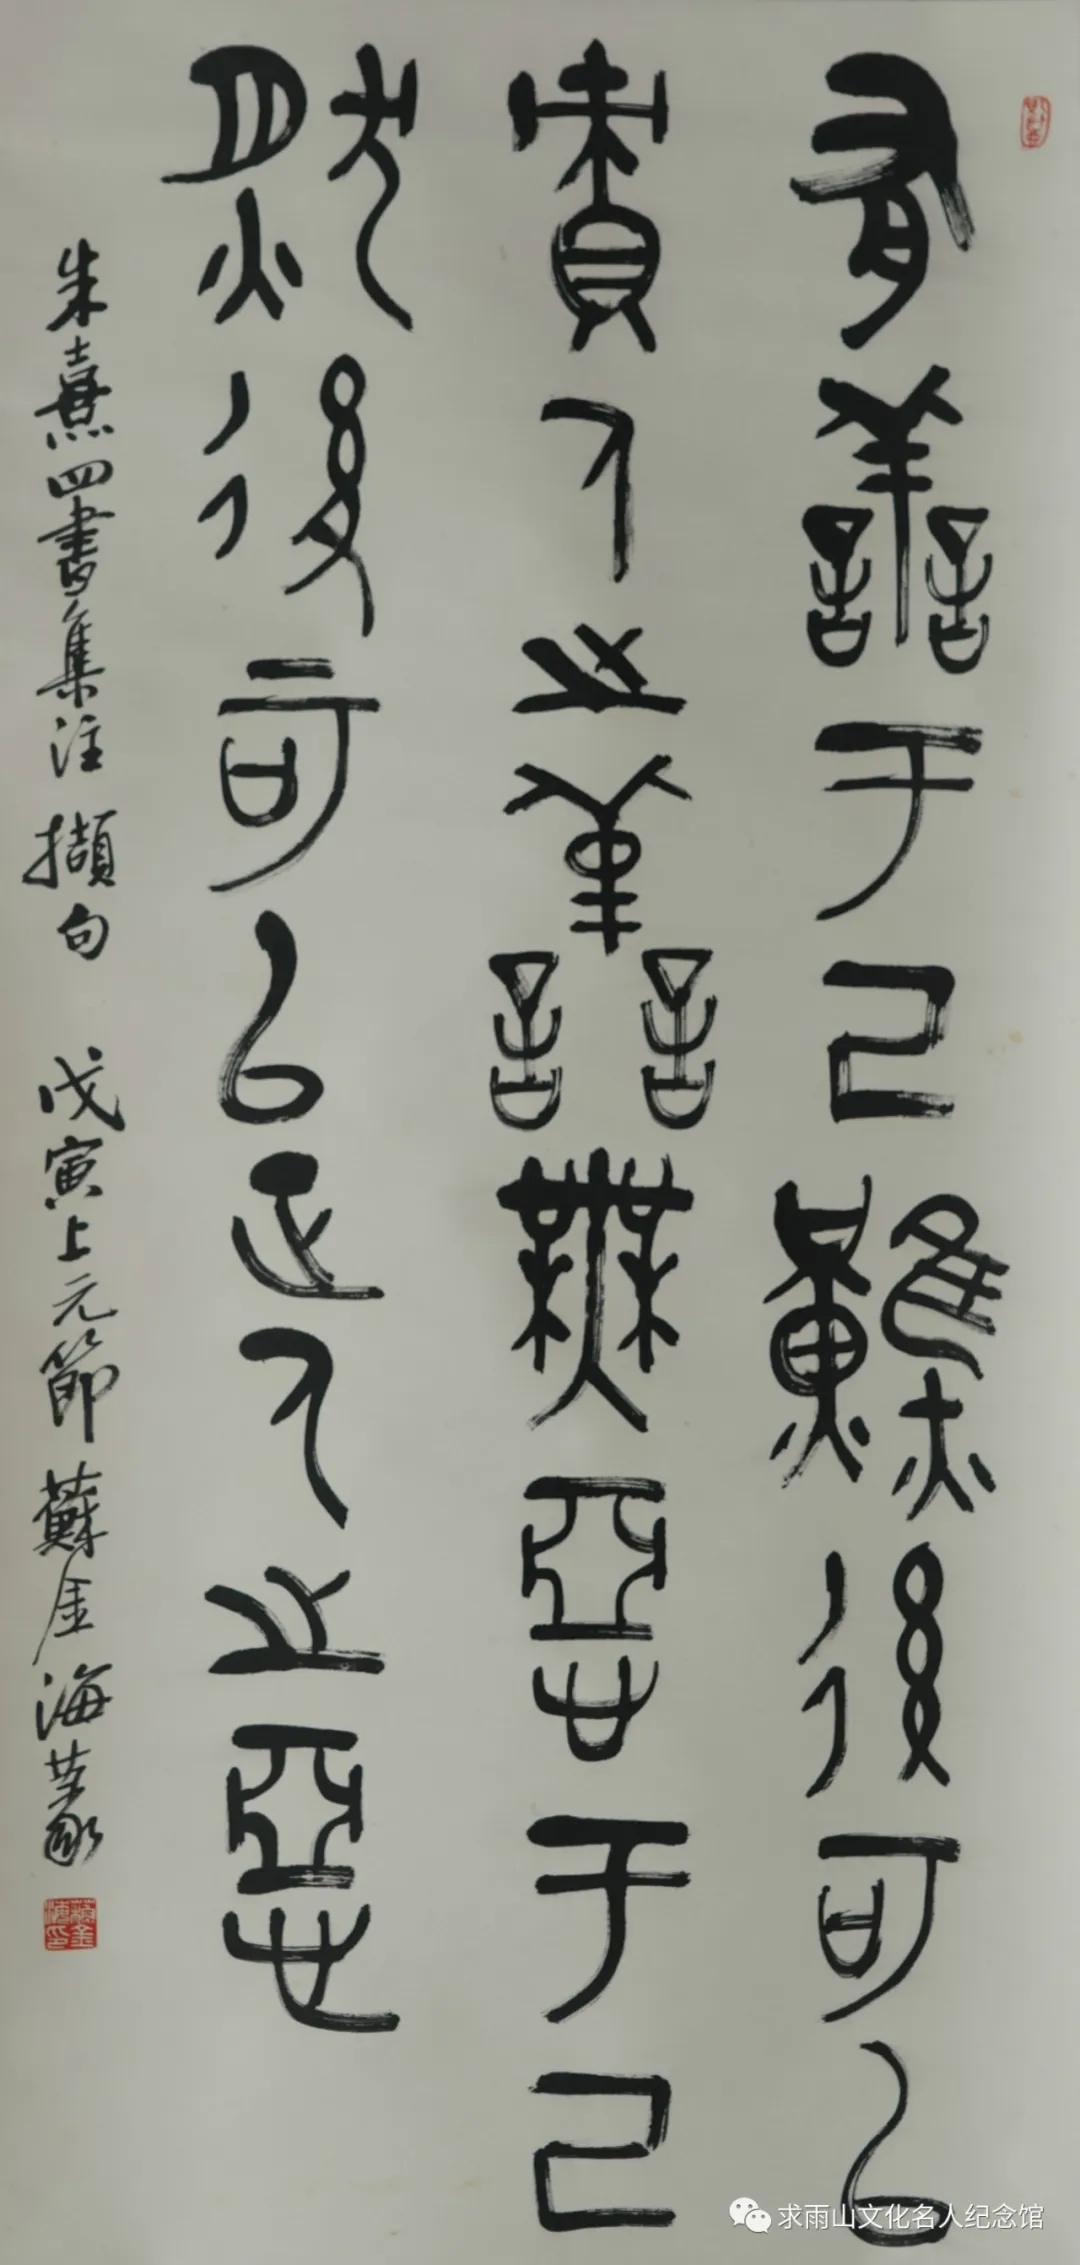 有善于己然後可以
責人之善無惡于己
然後可以正人之惡
朱熹四書集注擷句 戊寅上元節 蘇金海篆
蘇金海印
求雨山文化名人纪念馆